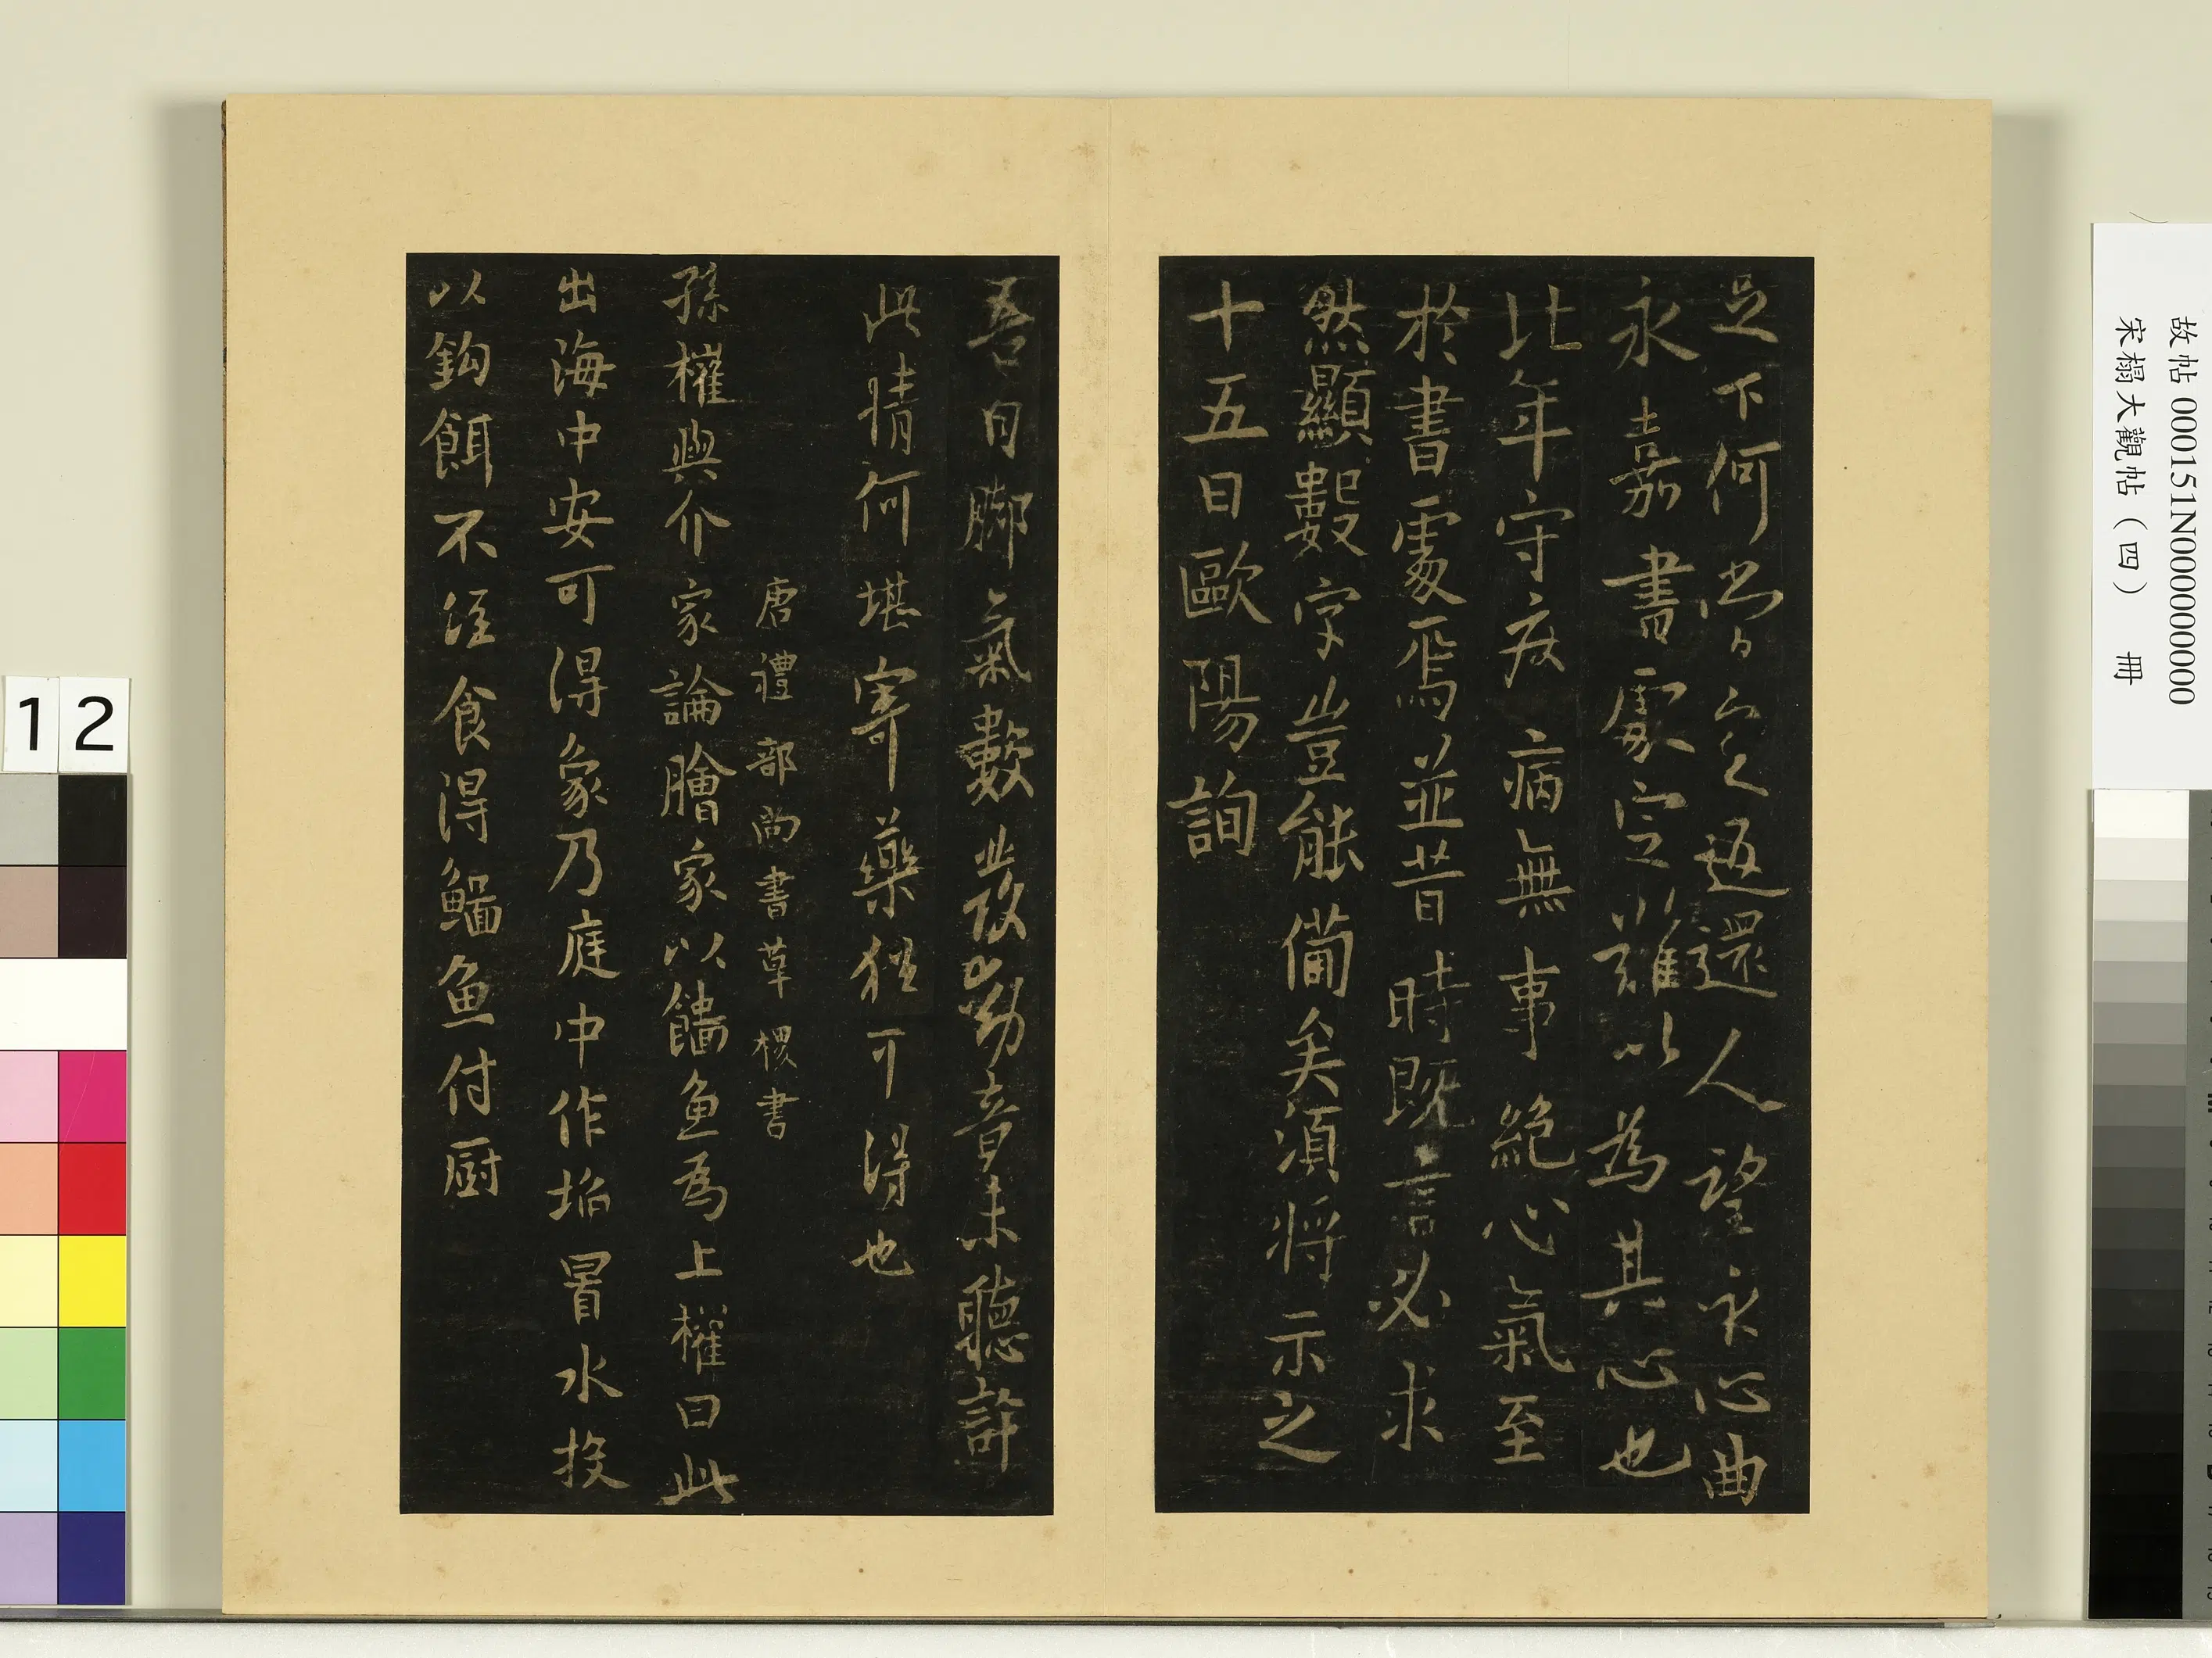 足下何當定返還人望示心曲
永嘉書處定難以為其心也
比年守疾病無事絕心氣至
於書處焉並昔時既言必求
然顯數字豈能備矣須將示之
十五日歐陽詢
吾自腳氣數發動竟未聽許
此情何堪寄藥猶可得也
唐禮部尚書薛稷書
孫權與介象論膾象以鯔魚為上權曰此
出海中安可得象乃庭中作埳冒水投
以鉤餌不經食得鯔魚付廚
故帖 000151N000000000
宋榻大觀帖（四） 冊
12